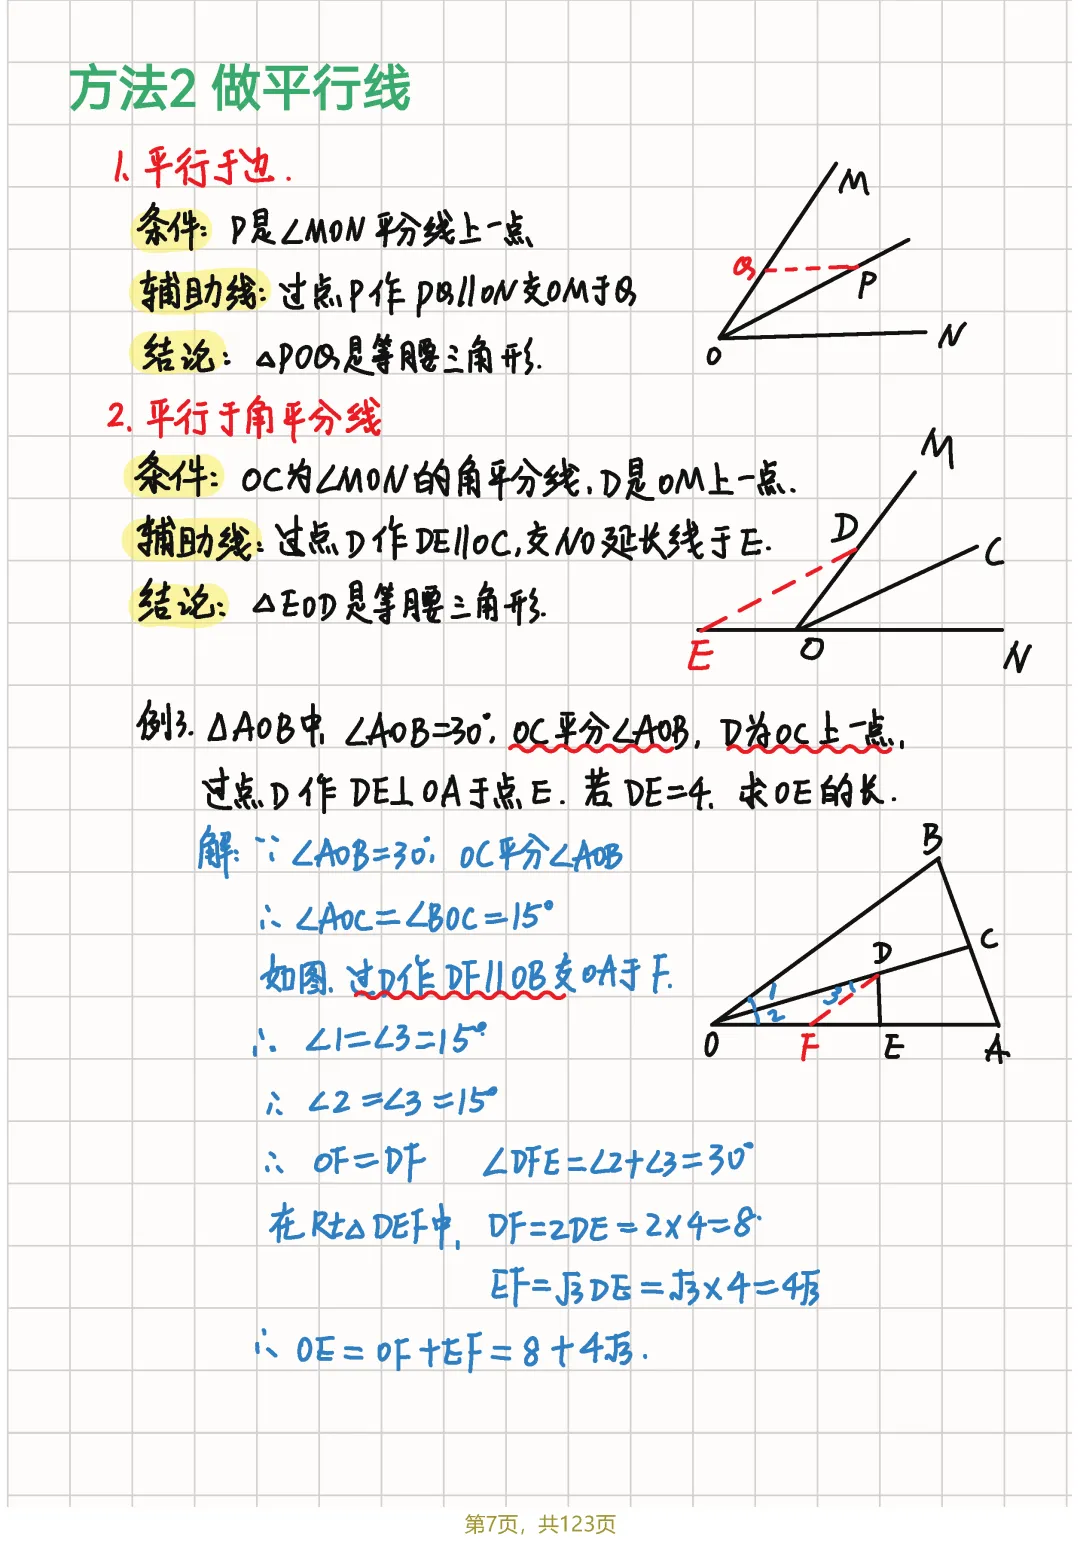 方法2 做平行线
1. 平行于边.
条件: P是∠MON平分线上一点
辅助线: 过点P作PQ∥ON交OM于Q
结论: △POQ是等腰三角形.
M
Q
P
N
O
2. 平行于角平分线
条件: OC为∠MON的角平分线, D是OM上一点.
辅助线: 过点D作DE∥OC, 交NO延长线于E.
结论: △EOD是等腰三角形.
M
D
C
E
O
N
例3. △AOB中, ∠AOB=30°, OC平分∠AOB, D为OC上一点,
过点D作DE⊥OA于点E. 若DE=4, 求OE的长.
解: ∵∠AOB=30°, OC平分∠AOB
∴∠AOC=∠BOC=15°
如图, 过D作DF∥OB交OA于F.
∴ ∠1=∠3=15°
∴ ∠2=∠3=15°
∴ OF=DF ∠DFE=∠2+∠3=30°
在Rt△DEF中, DF=2DE=2×4=8.
EF=√3DE=√3×4=4√3
∴ OE=OF+EF=8+4√3.
B
C
D
1
2
3
O
F
E
A
第7页，共123页